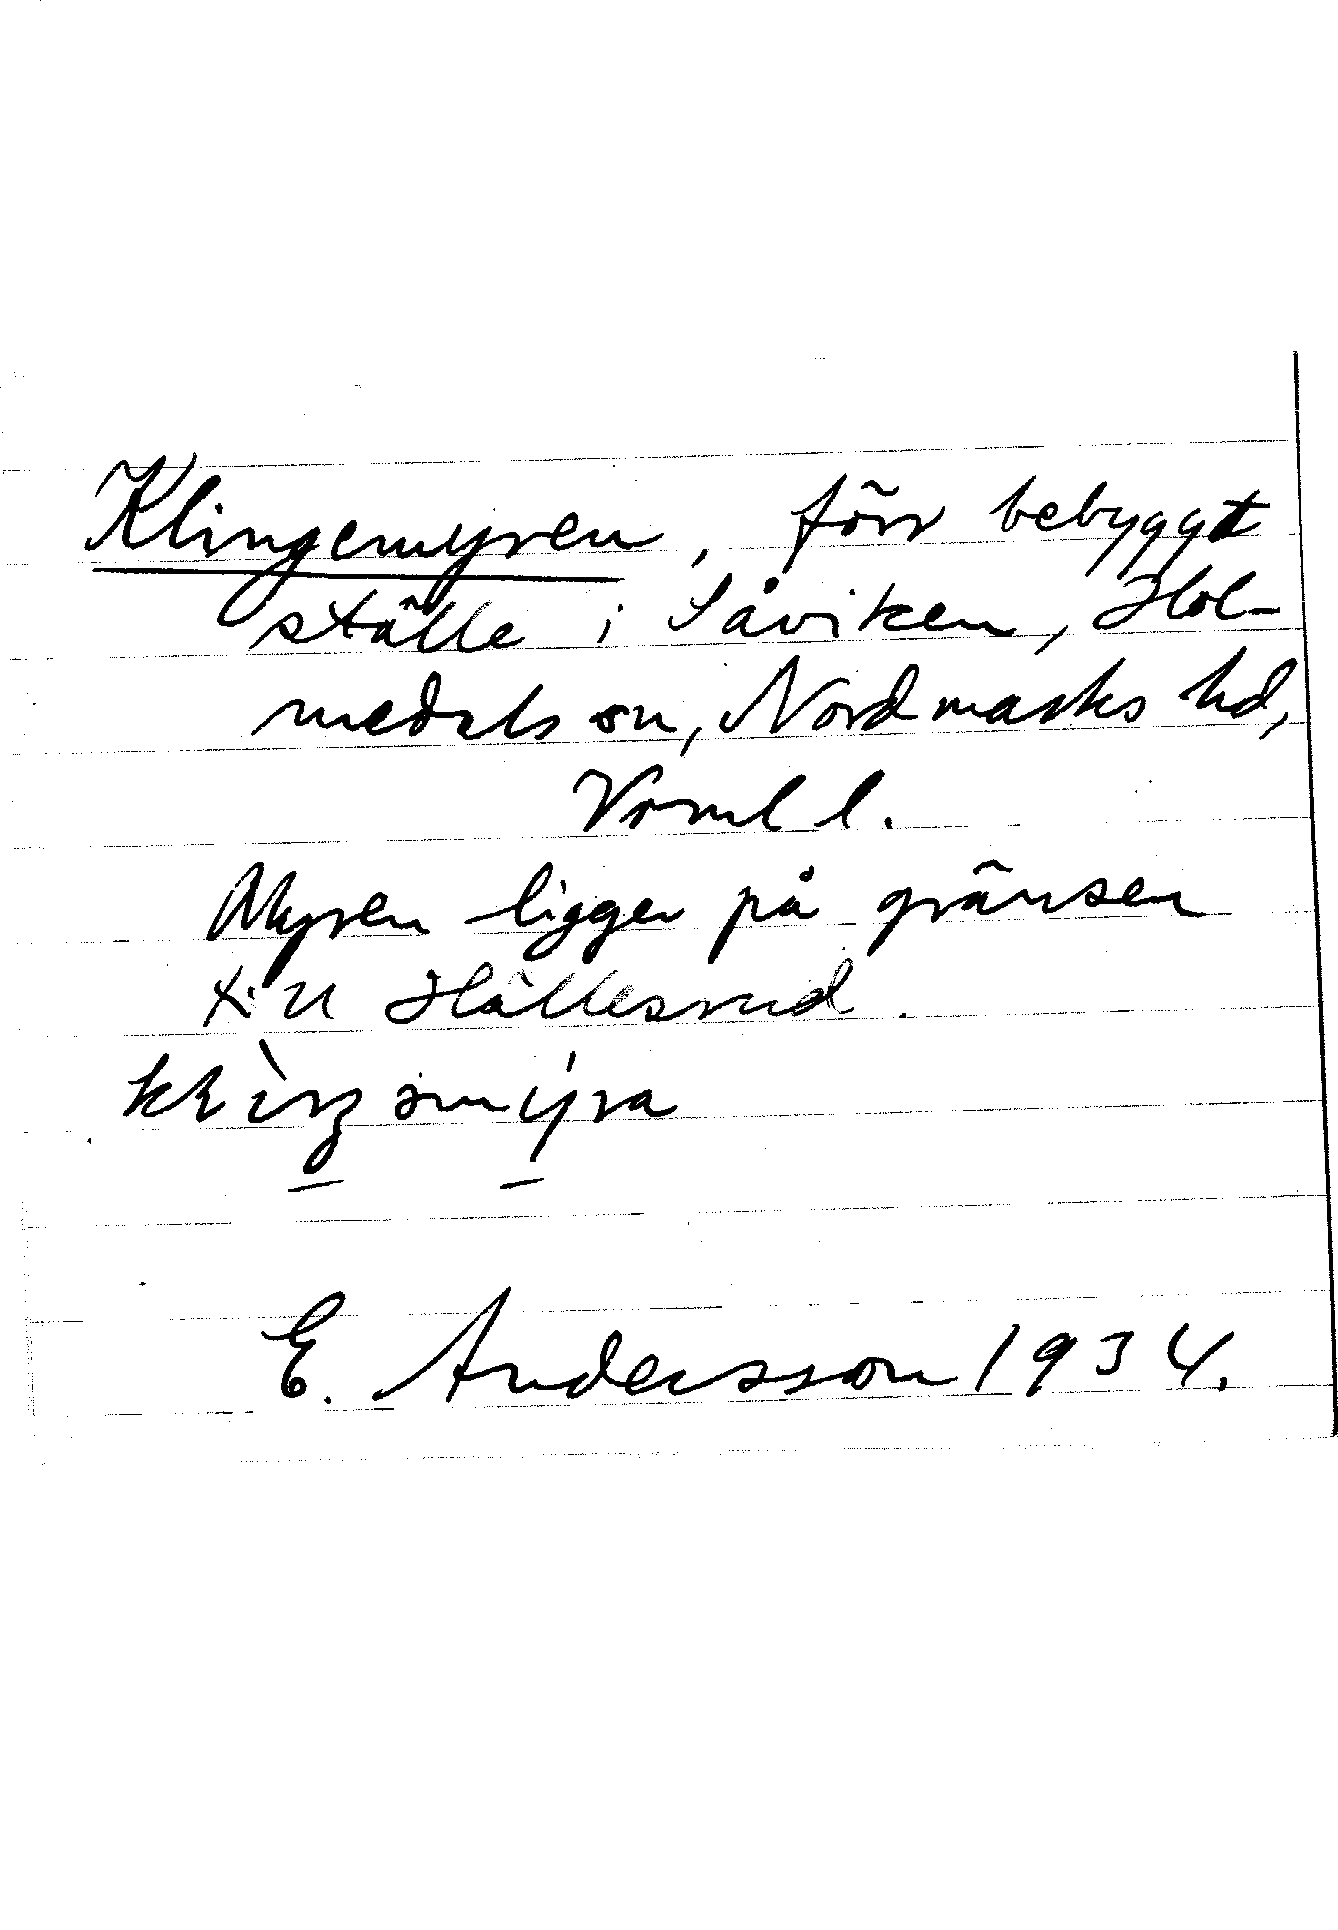 Klingemyren, förr bebyggt
ställe i Såviken, Hol-
medals sn, Nordmarks hd,
Värml l.
Myren ligger på gränsen
till Hällesrud.
E. Andersson 1934.